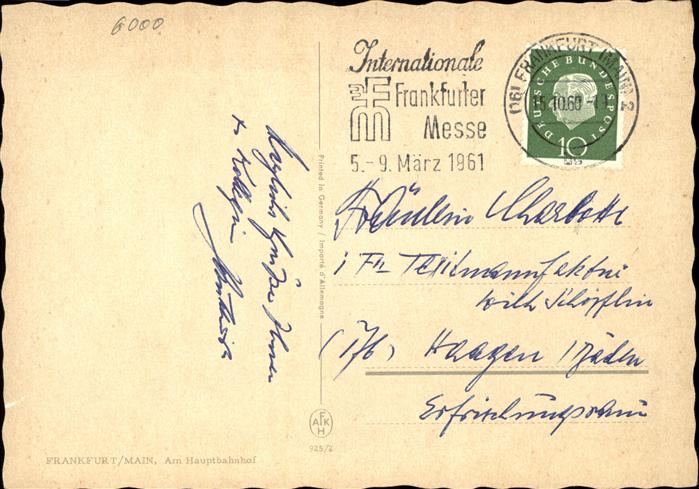 6000
Internationale
Frankfurter
Messe
5.-9. März 1961
(16) FRANKFURT (MAIN) 2
10.60
DEUTSCHE BUNDESPOST
10
Herzliche Grüße Ihnen
Kollegin
Printed in Germany / Importé d'Allemagne
Fräulein Charlotte
i Fa Textilmanufaktur
Wilh Schöpflin
(17b) Haagen / Baden
Erfrischungsraum
AFKH
925/2
FRANKFURT/MAIN, Am Hauptbahnhof